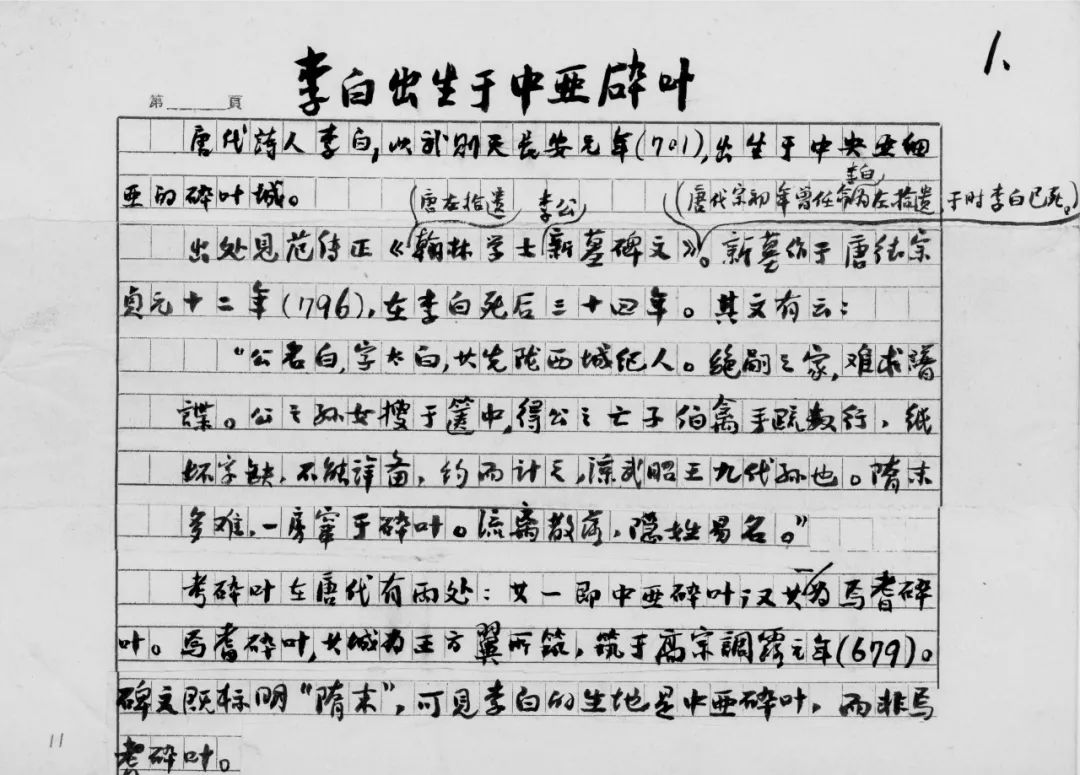 1、
李白出生于中亚碎叶
第 頁
唐代詩人李白,以武則天長安元年(701),出生于中央亚细
亚的碎叶城。
(唐左拾遗 李公 (唐代宗初年曾任命李白为左拾遗 于时李白已死。)
出处见范传正《翰林学士新墓碑文》。新墓作于唐德宗
贞元十二年(796),在李白死后三十四年。其文有云:
“公名白,字太白,其先陇西城纪人。绝嗣之家,难求譜
諜。公之孙女搜于箧中,得公之亡子伯禽手疏数行,纸
坏字缺,不能詳备,约而计之,凉武昭王九代孙也。隋末
多难,一房窜于碎叶。流离散落,隐姓易名。”
考碎叶在唐代有两处:其一即中亚碎叶;又其一为焉耆碎
叶。焉耆碎叶,其城为王方翼所筑,筑于高宗調露元年(679)。
碑文既标明“隋末”,可见李白的生地是中亚碎叶,而非焉
耆碎叶。
11